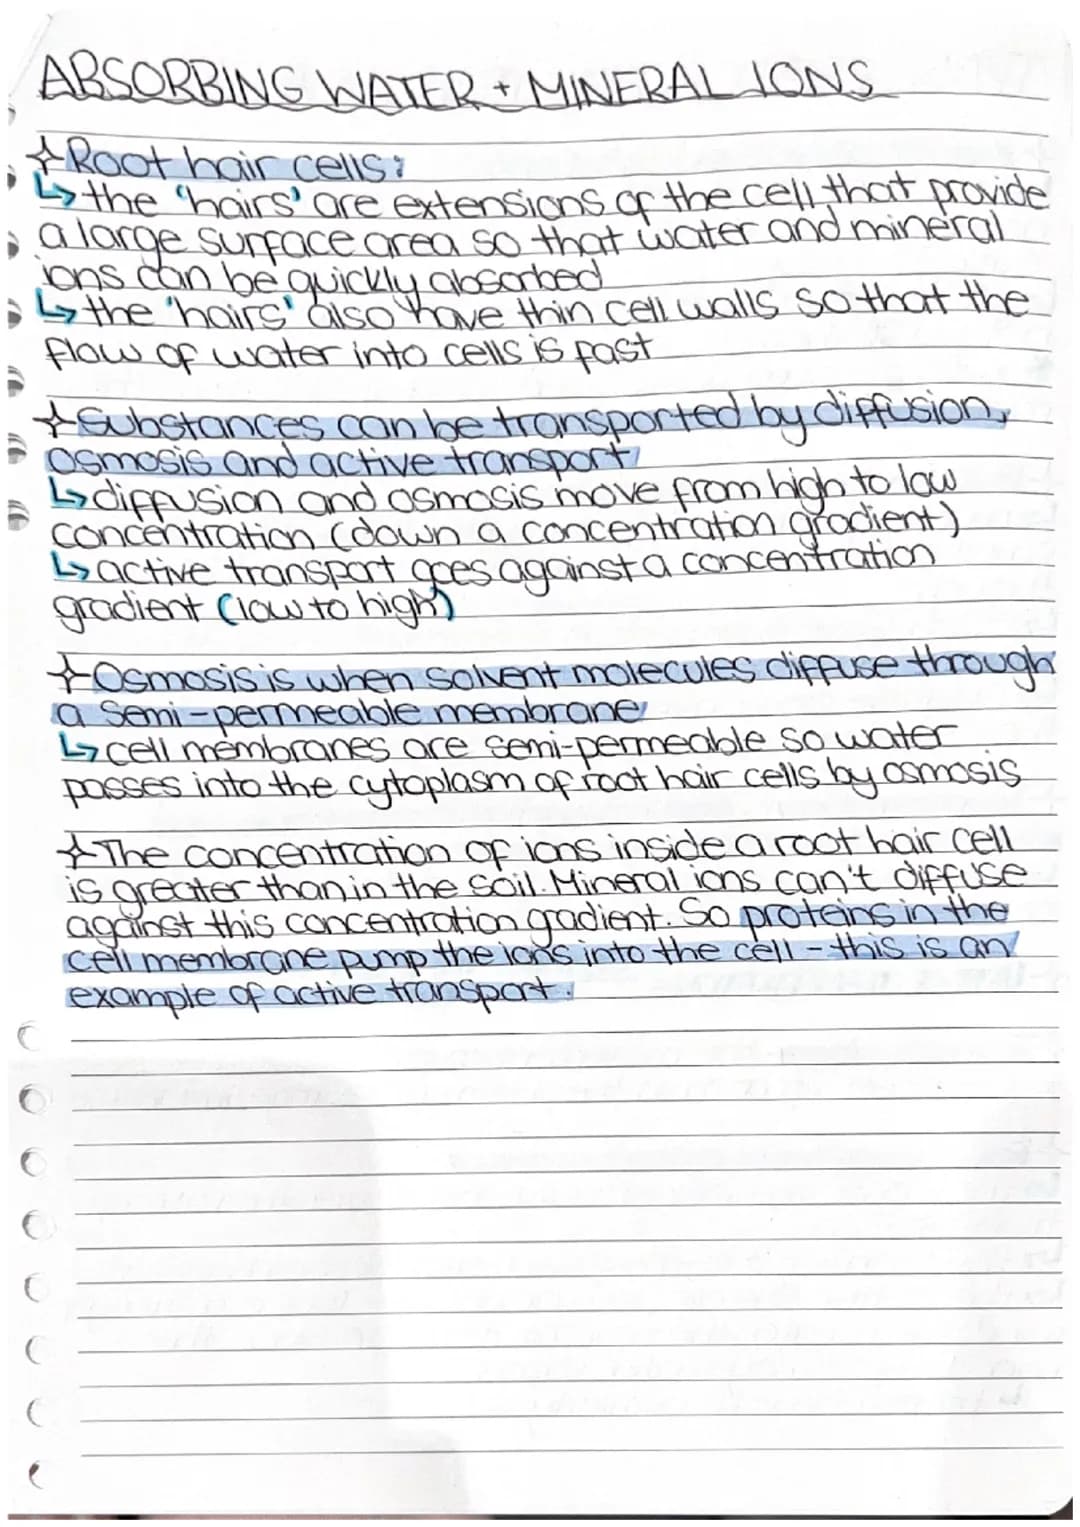 ABSORBING WATER + MINERAL IONS
Root hair cells:
↳ the 'hairs' are extensions of the cell that provide
a large surface area so that water and mineral
ions can be quickly absorbed
↳ the 'hairs' also have thin cell walls so that the
flow of water into cells is fast
Substances can be transported by diffusion,
osmosis and active transport
↳ diffusion and osmosis move from high to low
concentration (down a concentration gradient)
↳ active transport goes against a concentration
gradient (low to high)
Osmosis is when solvent molecules diffuse through
a semi-permeable membrane
↳ cell membranes are semi-permeable so water
passes into the cytoplasm of root hair cells by osmosis
The concentration of ions inside a root hair cell
is greater than in the soil. Mineral ions can't diffuse
against this concentration gradient. So proteins in the
cell membrane pump the ions into the cell - this is an
example of active transport.